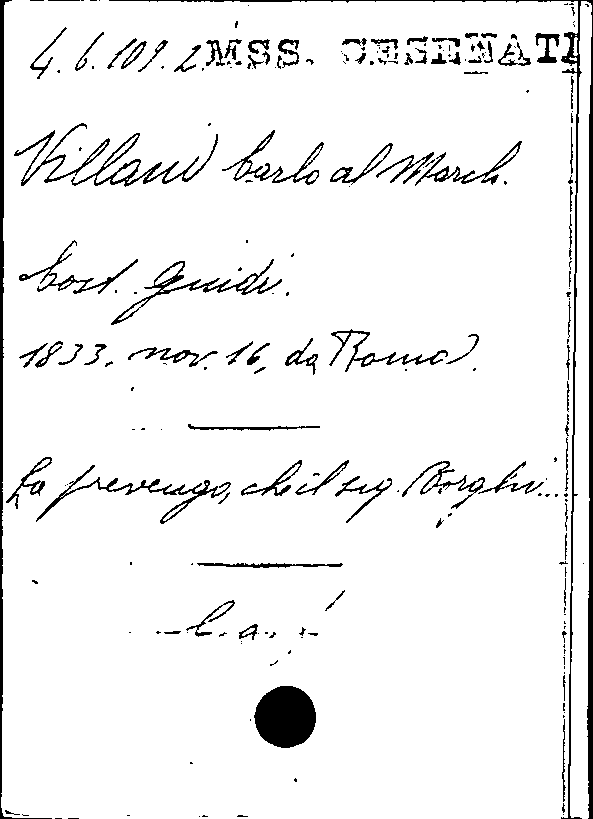 4.6.109.2 MSS. CESENATI
Villani Carlo al March.
Cost. Guidi.
1833. nov. 16, da Roma.
La prevengo, che il sig. Borghi...
C. a.